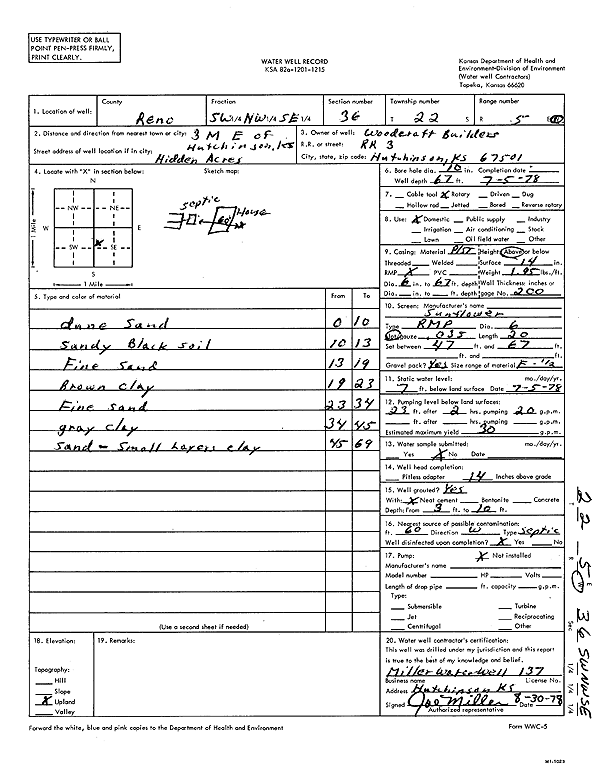 USE TYPEWRITER OR BALL
POINT PEN-PRESS FIRMLY,
PRINT CLEARLY.
WATER WELL RECORD
KSA 82a-1201-1215
Kansas Department of Health and
Environment-Division of Environment
(Water well Contractors)
Topeka, Kansas 66620
1. Location of well: County Reno Fraction SW 1/4 NW 1/4 SE 1/4 Section number 36 Township number T 22 S Range number R 5 E W
2. Distance and direction from nearest town or city: 3 M E of
Hutchinson, Ks
Street address of well location if in city: Hidden Acres
3. Owner of well: Woodcraft Builders
R.R. or street: RR 3
City, state, zip code: Hutchinson, KS 67501
4. Locate with "X" in section below: Sketch map:
N
NW NE
W E
SW SE
X
S
1 Mile
1 Mile
septic
House
60
5. Type and color of material From To
dune sand 0 10
Sandy Black soil 10 13
Fine Sand 13 19
Brown clay 19 23
Fine sand 23 34
gray clay 34 45
Sand - Small Layers clay 45 69
(Use a second sheet if needed)
6. Bore hole dia. 10 in. Completion date
Well depth 67 ft. 7-5-78
7. Cable tool X Rotary Driven Dug
Hollow rod Jetted Bored Reverse rotary
8. Use: X Domestic Public supply Industry
Irrigation Air conditioning Stock
Lawn Oil field water Other
9. Casing: Material Height: Above or below
Threaded Welded Surface 14 in.
RMP X PVC Weight 1.95 lbs./ft.
Dia. 6 in. to 67 ft. depth Wall Thickness: inches or
Dia. in. to ft. depth gage No. 200
10. Screen: Manufacturer's name
Sunflower
Type RMP Dia. 6
.035 Length 20
Set between 47 ft. and 67 ft.
ft. and ft.
Gravel pack? Yes Size range of material F-1/2
11. Static water level: mo./day/yr.
7 ft. below land surface Date 7-5-78
12. Pumping level below land surfaces:
23 ft. after 2 hrs. pumping 20 g.p.m.
ft. after hrs. pumping g.p.m.
Estimated maximum yield 30 g.p.m.
13. Water sample submitted: mo./day/yr.
Yes X No Date
14. Well head completion:
Pitless adapter 14 Inches above grade
15. Well grouted? Yes
With: X Neat cement Bentonite Concrete
Depth: From 3 ft. to 10 ft.
16. Nearest source of possible contamination:
ft. 60 Direction W Type septic
Well disinfected upon completion? X Yes No
17. Pump: X Not installed
Manufacturer's name
Model number HP Volts
Length of drop pipe ft. capacity g.p.m.
Type:
Submersible Turbine
Jet Reciprocating
Centrifugal Other
18. Elevation:
Topography:
Hill
Slope
X Upland
Valley
19. Remarks:
20. Water well contractor's certification:
This well was drilled under my jurisdiction and this report
is true to the best of my knowledge and belief.
Miller Waterwell 137
Business name License No.
Address Hutchinson KS
Signed Joe Miller Date 8-30-78
Authorized representative
T 22 R 5 E W Sec 36 SW NW SE 1/4 1/4 1/4
Forward the white, blue and pink copies to the Department of Health and Environment
Form WWC-5